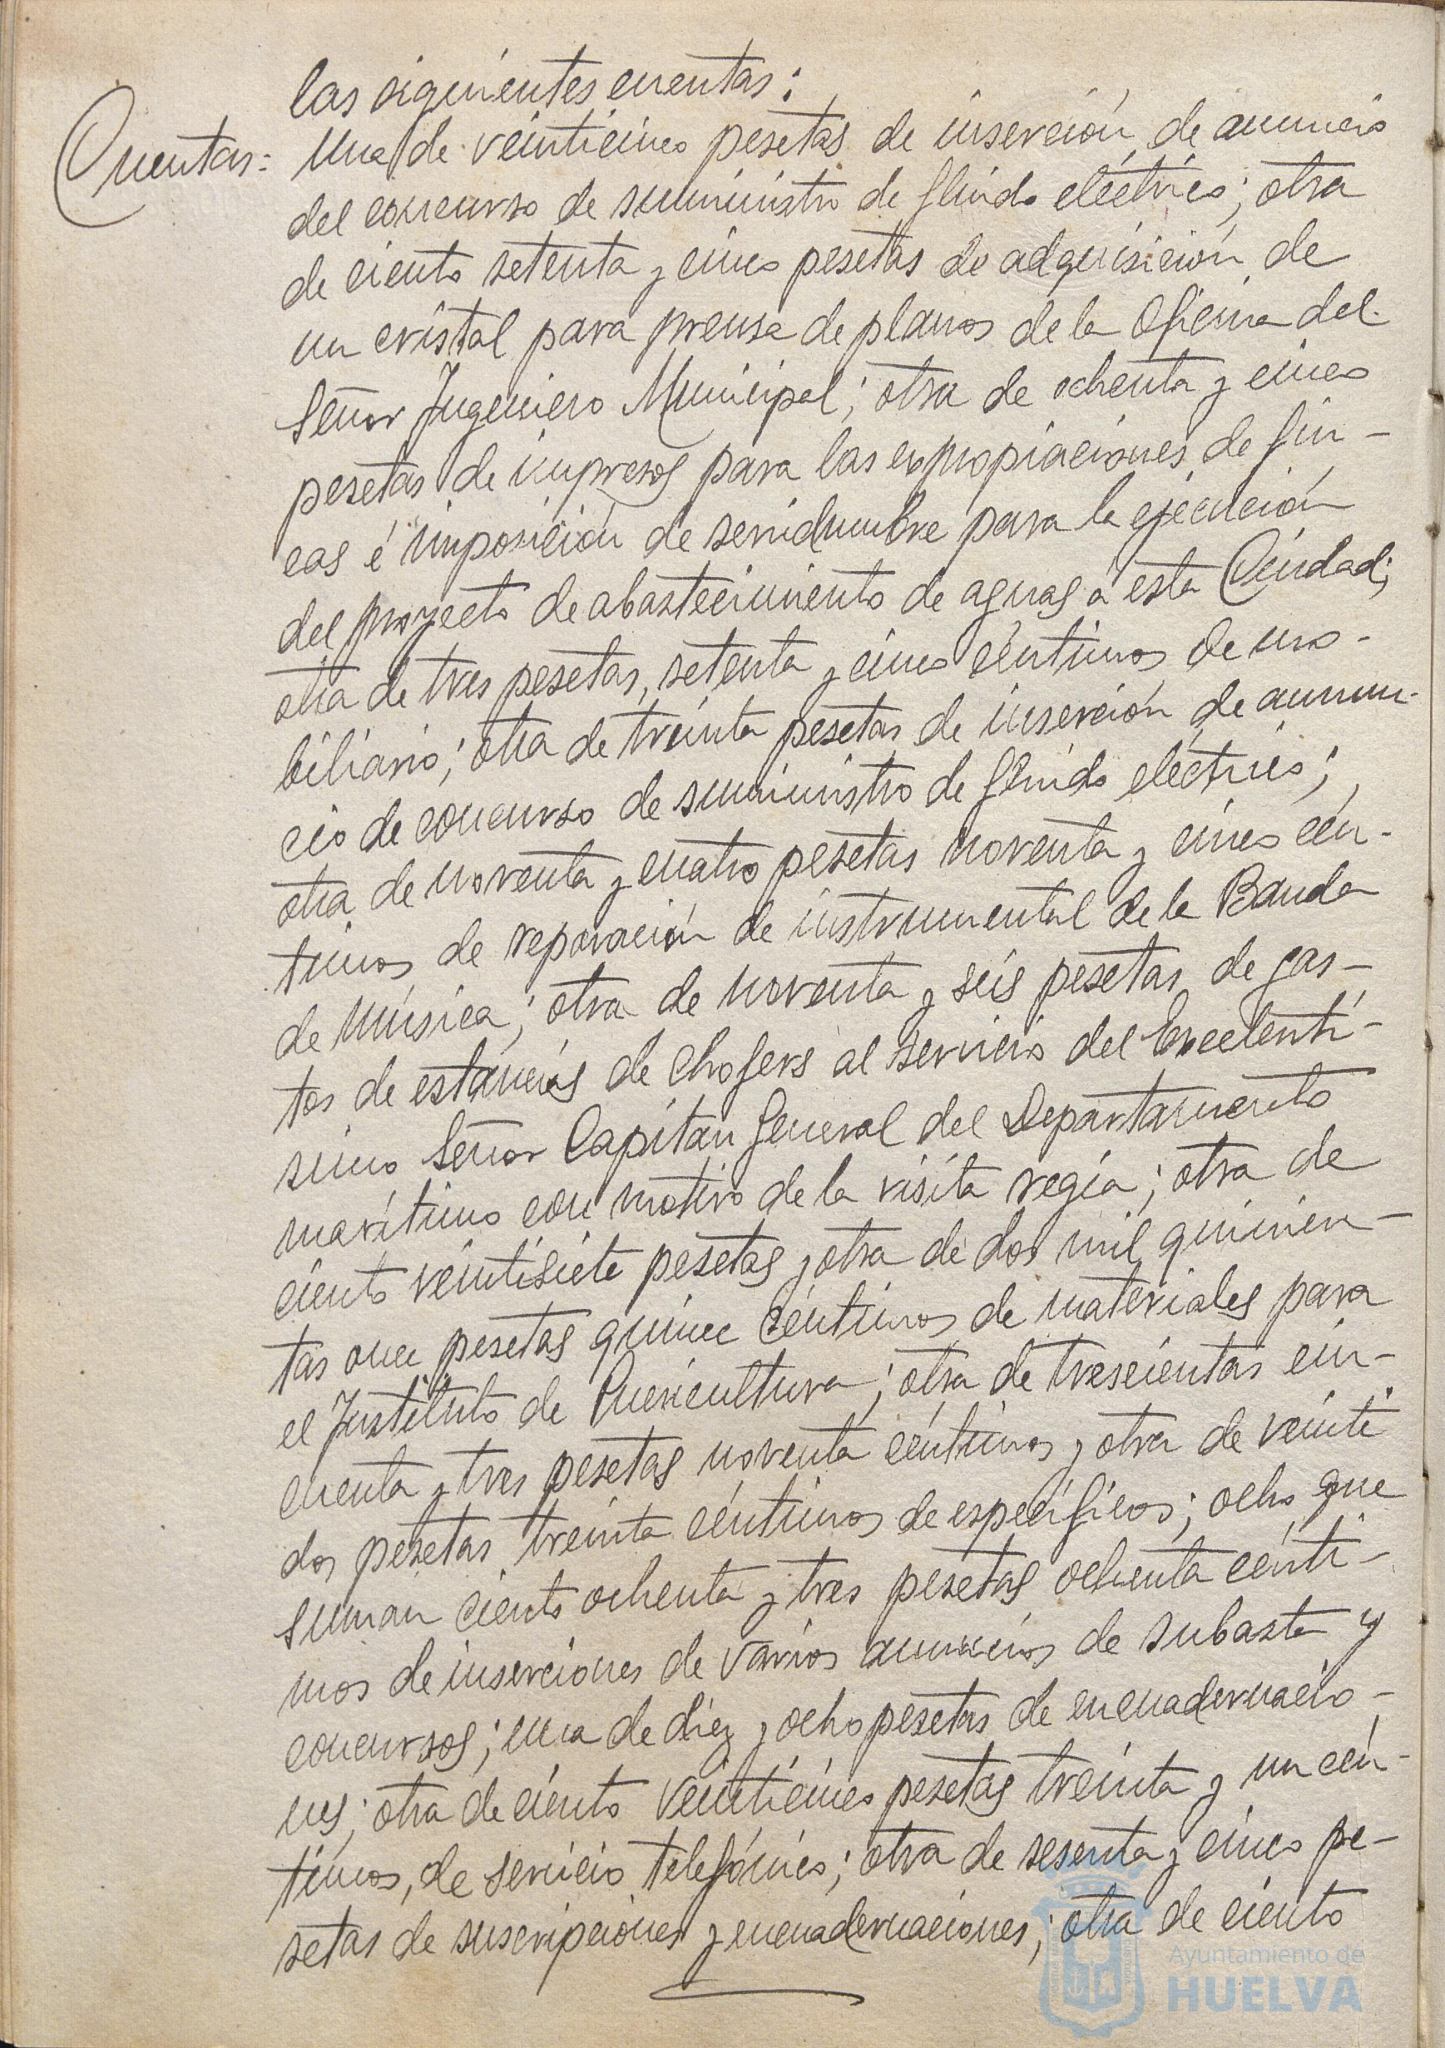 las siguientes cuentas:
Cuentas=
Una de veinticinco pesetas de inserción de anuncio
del concurso de suministro de fluido eléctrico; otra
de ciento setenta y cinco pesetas de adquisición de
un cristal para prensa de planos de la Oficina del
Señor Ingeniero Municipal; otra de ochenta y cinco
pesetas de impresos para las expropiaciones de fin-
cas é imposición de servidumbre para la ejecución
del proyecto de abastecimiento de aguas á esta Ciudad;
otra de tres pesetas, setenta y cinco céntimos de mo-
biliario; otra de treinta pesetas de inserción de anun-
cio de concurso de suministro de fluido eléctrico;
otra de noventa y cuatro pesetas noventa y cinco cén-
timos de reparación de instrumental de la Banda
de Música; otra de noventa y seis pesetas de gas-
tos de estancias de chofers al servicio del Excelentí-
simo Señor Capitán General del Departamento
marítimo con motivo de la visita regia; otra de
ciento veintisiete pesetas y otra de dos mil quinien-
tas once pesetas quince céntimos de materiales para
el Instituto de Puericultura; otra de trescientas cin-
cuenta y tres pesetas noventa céntimos y otra de veinti
dos pesetas treinta céntimos de específicos; ocho que
suman ciento ochenta y tres pesetas ochenta cénti-
mos de inserciones de varios anuncios de subasta y
concursos; una de diez y ocho pesetas de encuadernacio-
nes; otra de ciento veinticinco pesetas treinta y un cén-
timos, de servicio telefónico; otra de sesenta y cinco pe-
setas de suscripciones y encuadernaciones; otra de ciento
Ayuntamiento de
HUELVA